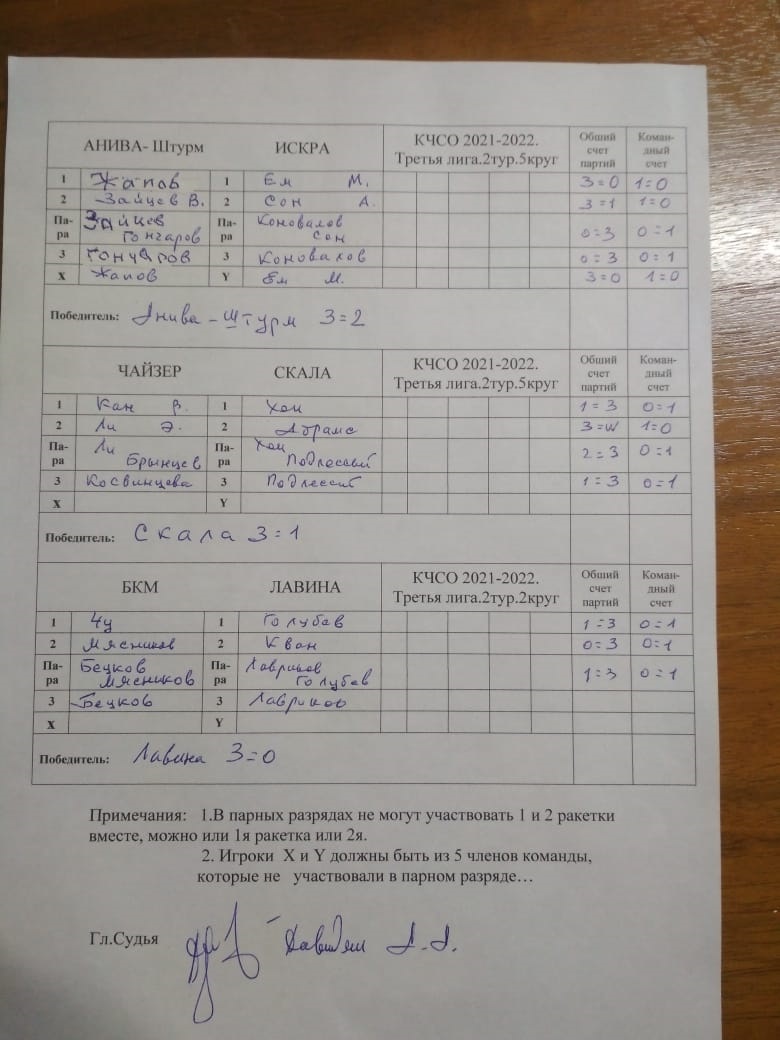 АНИВА- Штурм ИСКРА КЧСО 2021-2022. Третья лига.2тур.5круг Общий счет партий Коман-дный счет
1 Жапов 1 Ем М. 3=0 1=0
2 Зайцев В. 2 Сон А. 3=1 1=0
Па-ра Зайцев Гончаров Па-ра Коновалов Сон 0=3 0=1
3 Гончаров 3 Коновалов 0=3 0=1
X Жапов Y Ем М. 3=0 1=0
Победитель: Анива-Штурм 3=2
ЧАЙЗЕР СКАЛА КЧСО 2021-2022. Третья лига.2тур.5круг Общий счет партий Коман-дный счет
1 Кан В. 1 Хан 1=3 0=1
2 Ли Э. 2 Абрамс 3=W 1=0
Па-ра Ли Брынцев Па-ра 2=3 0=1
3 Косвинцева 3 1=3 0=1
X Y
Победитель: Скала 3=1
БКМ ЛАВИНА КЧСО 2021-2022. Третья лига.2тур.2круг Общий счет партий Коман-дный счет
1 Чу 1 Голубев 1=3 0=1
2 Мясников 2 Кван 0=3 0=1
Па-ра Бецков Мясников Па-ра Лавриков Голубев 1=3 0=1
3 Бецков 3 Лавриков
X Y
Победитель: Лавина 3=0
Примечания: 1.В парных разрядах не могут участвовать 1 и 2 ракетки
вместе, можно или 1я ракетка или 2я.
2. Игроки X и Y должны быть из 5 членов команды,
которые не участвовали в парном разряде…
Гл.Судья